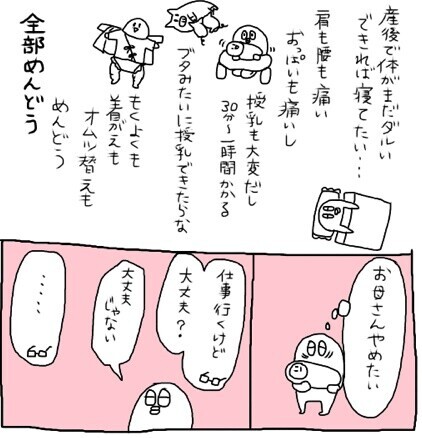 産後で体がまだダルい
できれば寝てたい…
肩も腰も痛い
おっぱいも痛いし
授乳も大変だし
30分～一時間かかる
ブタみたいに授乳できたらな
もくよくも
着がえも
オムツ替えも
めんどう
全部めんどう
お母さんやめたい
仕事行くけど
大丈夫？
大丈夫
じゃない
・・・・・